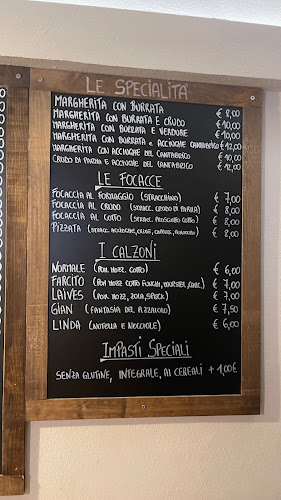 LE SPECIALITÀ
MARGHERITA CON BURRATA € 8,00
MARGHERITA CON BURRATA E CRUDO € 10,00
MARGHERITA CON BURRATA E VERDURE € 10,00
MARGHERITA CON BURRATA E ACCIUGHE CANTABRICO € 12,00
MARGHERITA CON ACCIUGHE DEL CANTABRICO € 10,00
CRUDO DI PARMA E ACCIUGHE DEL CANTABRICO € 12,00
LE FOCACCE
FOCACCIA AL FORMAGGIO (STRACCHINO) € 7,00
FOCACCIA AL CRUDO (STRACC. CRUDO DI PARMA) € 8,00
FOCACCIA AL COTTO (STRACC. PROSCIUTTO COTTO) € 8,00
PIZZATA (STRACC. ACCIUGHE, OLIVE, CAPPERI, POMODORO) € 8,00
I CALZONI
NORMALE (POM. MOZZ. COTTO) € 6,00
FARCITO (POM MOZZ COTTO FUNGHI, WÜRSTEL, CARC.) € 7,00
LAIVES (POM. MOZZ, ZOLA, SPECK) € 7,00
GIAN (FANTASIA DEL PIZZAIOLO) € 7,50
LINDA (NUTELLA E NOCCIOLE) € 6,00
IMPASTI SPECIALI
SENZA GLUTINE, INTEGRALE, AI CEREALI + 1,00€